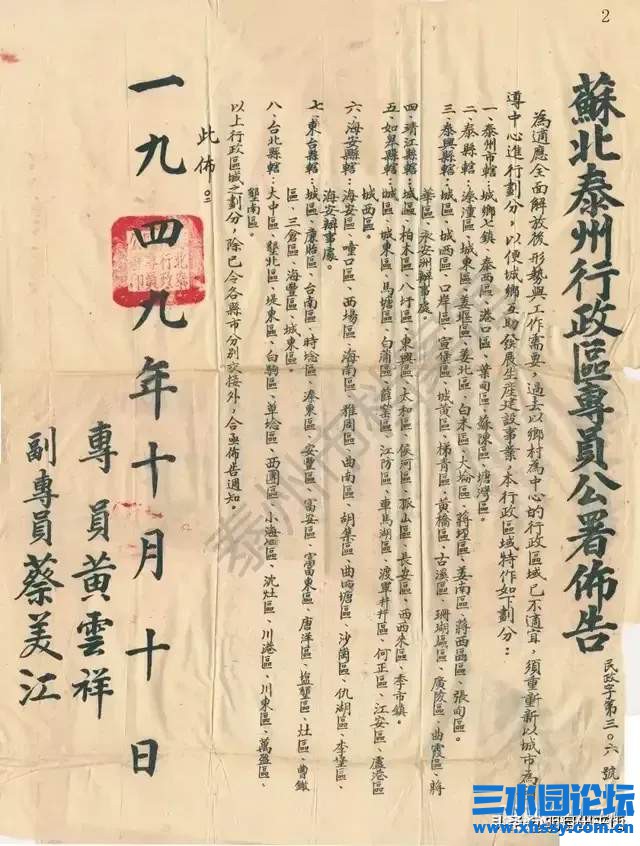 2
蘇北泰州行政區專員公署佈告
民政字第三〇六號
為適應全面解放後形勢與工作需要,過去以鄉村為中心的行政區域已不適宜,須重重新以城市為
導中心進行劃分,以便城鄉互助發展生産建設事業,本行政區域特作如下劃分:
一、泰州市轄:城鄉七鎮、泰西區、港口區、葉甸區、蘇陳區、塘灣區。
二、泰縣轄:溱潼區、城東區、姜堰區、姜北區、白米區、大埨區、蔣垤區、姜南區、蔣西區、張甸區。
三、泰興縣轄:城區、城西區、口岸區、宣堡區、城黃區、梯青區、黃橋區、古溪區、珊瑚區、廣陵區、曲霞區、蔣
華區、永安洲辦事處。
四、靖江縣轄:城區、柏木區、八圩區、東興區、太和區、侯河區、孤山區、長安區、西西來區、季市鎮。
五、如皋縣轄:城區、城東區、馬塘區、白蒲區、薛窯區、江防區、車馬湖區、渡軍井區、何正區、江安區、盧港區
城西區。
六、海安縣轄:海安區、曈口區、西場區、海南區、雅周區、曲南區、胡集區、曲塘區、沙崗區、仇湖區、李堡區、
海安辦事處。
七、東台縣轄:城區、廉貽區、台南區、時埝區、溱東區、安豐區、富安區、富東區、唐洋區、鹽墾區、灶區、曹𨫼
區、三倉區、海豐區、城東區。
八、台北縣轄:大中區、墾北區、堤東區、白駒區、草埝區、西團區、小海區、沈灶區、川港區、川東區、萬盈區、
墾南區。
以上行政區域之劃分,除已令各縣市分別交接外,合亟佈告通知。
此佈。
一九四九年十月十日
專員黃雲祥
副專員蔡美江
三水园论坛
www.xtssy.com.cn